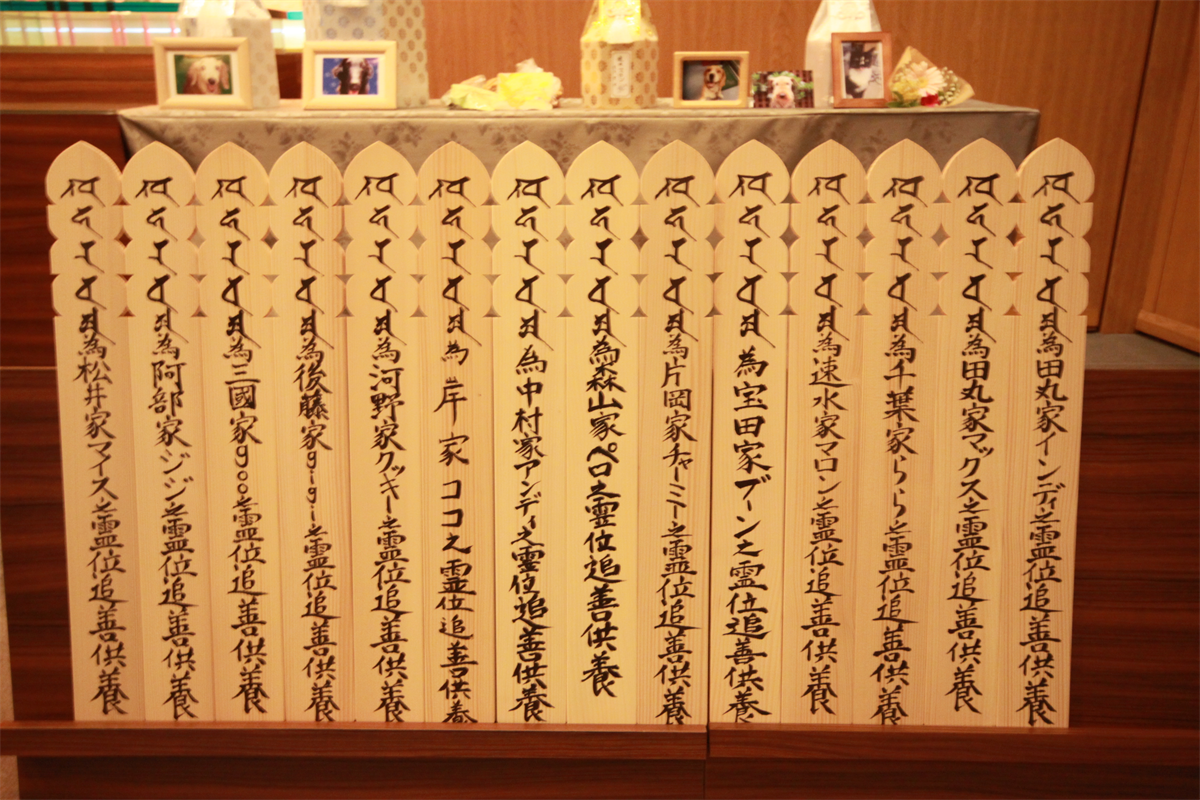 為田丸家インディ之霊位追善供養
為田丸家マックス之霊位追善供養
為千葉家らら之霊位追善供養
為速水家マロン之霊位追善供養
為宝田家ブーン之霊位追善供養
為片岡家チャーミー之霊位追善供養
為森山家ペロ之霊位追善供養
為中村家アンディ之霊位追善供養
為岸家ココ之霊位追善供養
為河野家クッキー之霊位追善供養
為後藤家gigi之霊位追善供養
為三國家goo之霊位追善供養
為阿部家ジジ之霊位追善供養
為松井家マイス之霊位追善供養